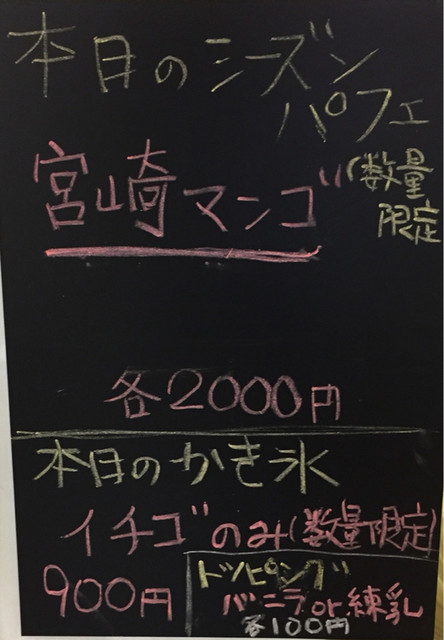 本日のシーズン
パフェ
宮崎マンゴ
(数量
限定
各2000円
本日のかき氷
イチゴのみ(数量限定)
900円
トッピング
バニラor練乳
各100円